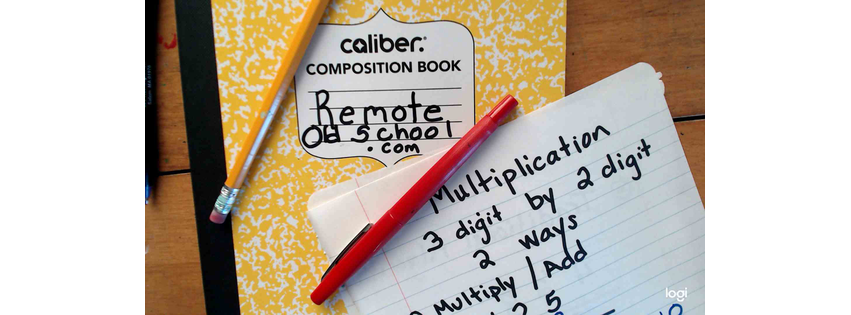 caliber.
COMPOSITION BOOK
Remote
Old School
.com
Multiplication
3 digit by 2 digit
2 ways
Multiply / Add
2 5
logi